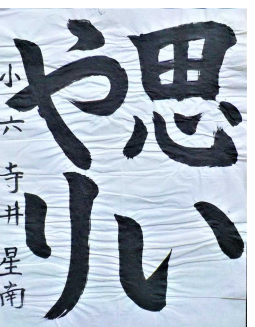 思い
やり
小六 寺井星南